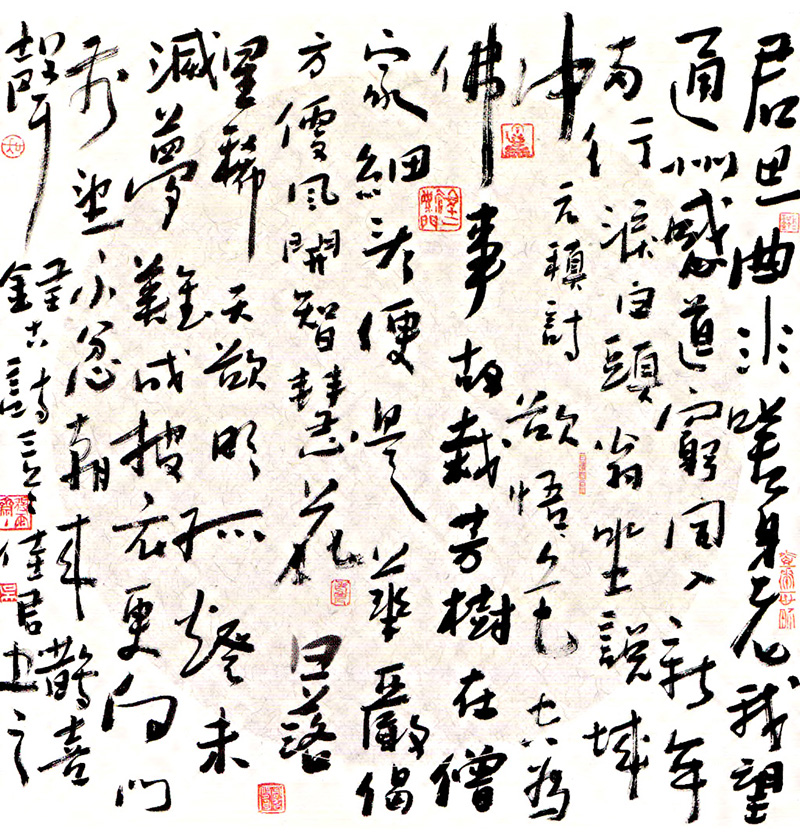 君思曲水嗟身老我望
通州感道窮同入新年
两行淚白頭翁坐說城
中 元稹詩 欲悟色空為
佛事故栽芳樹在僧
家細看便是華嚴偈
方便風開智慧花 月落
星稀天欲明孤燈未
滅夢難成披衣更向門
前望不忿朝来鵲喜
聲 錄古詩三首